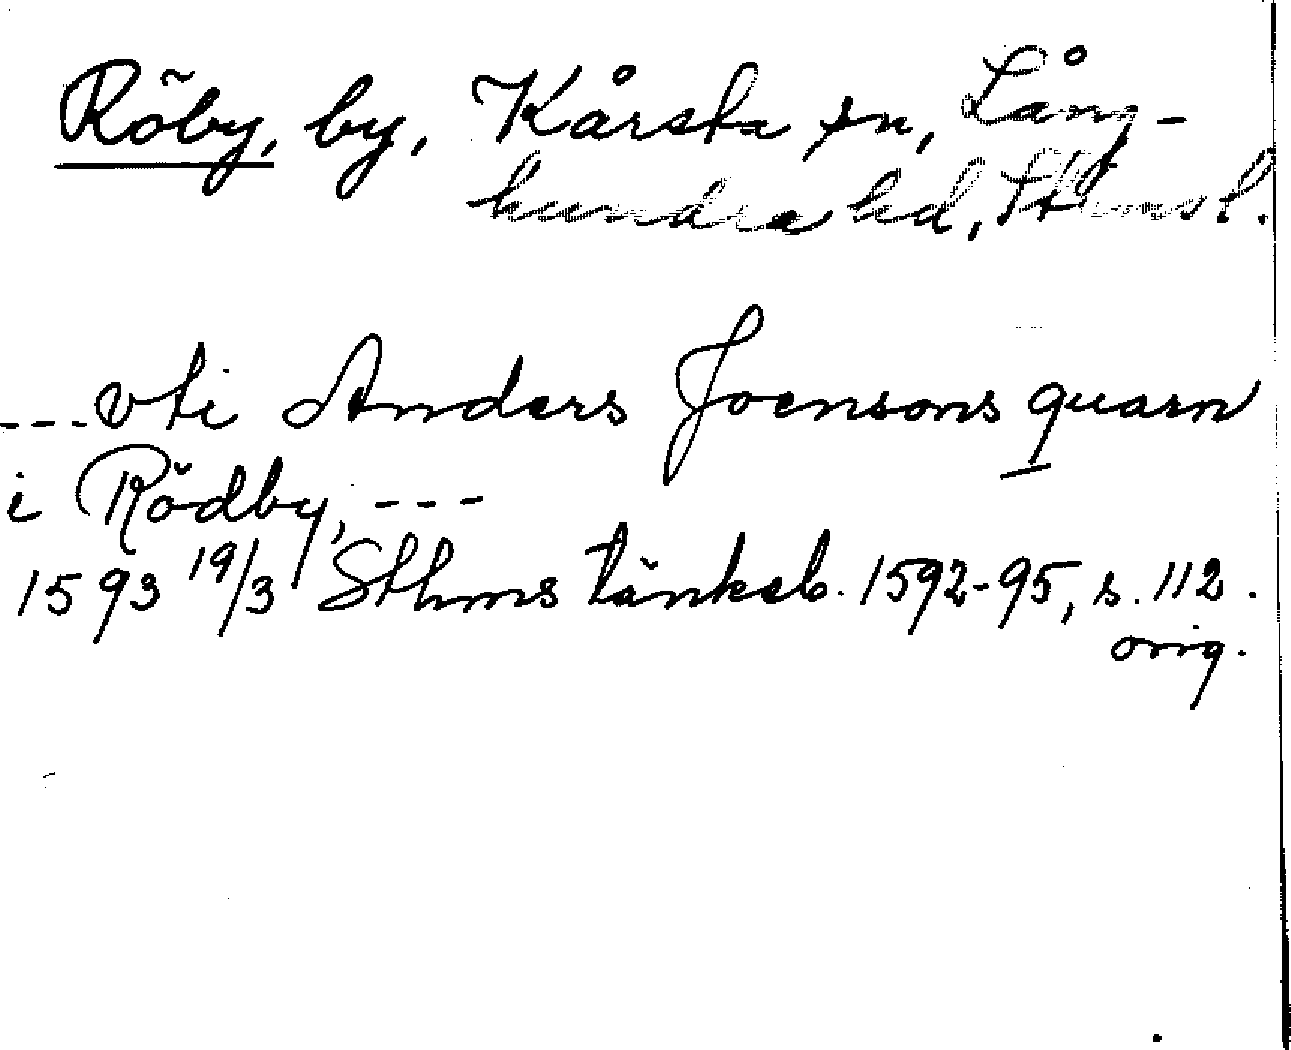 Röby, by, Kårsta sn, Lång-
hundra hd, Sthmsl.
---vti Anders Joensons quarn
i Rödby, ---
1593 19/3 Sthms tänkeb. 1592-95, s. 112.
orig.